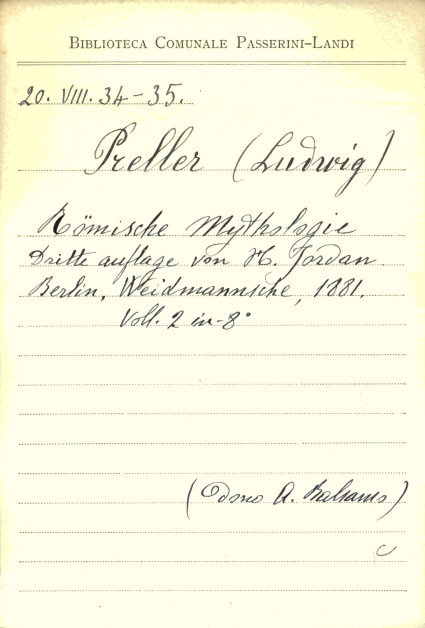 BIBLIOTECA COMUNALE PASSERINI-LANDI
20. VIII. 34-35.
Preller (Ludwig)
Römische Mythologie
Dritte auflage von H. Jordan
Berlin, Weidmannsche, 1881.
Voll. 2 in-8°
(Dono A. Balsamo)
C